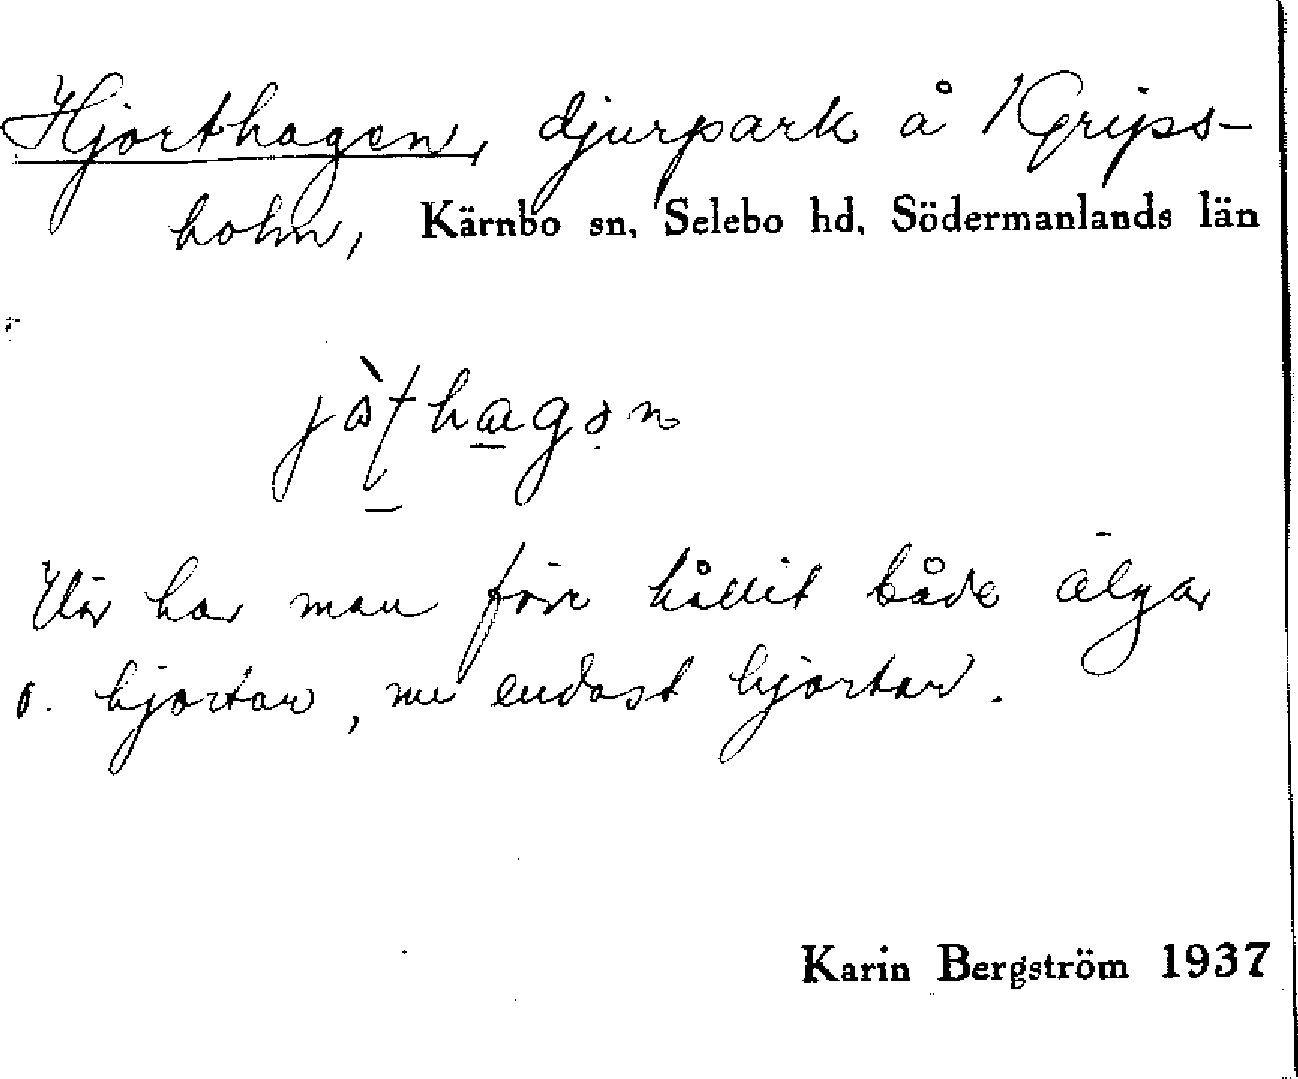 Hjorthagen, djurpark å 1 Grips-
holm, Kärnbo sn, Selebo hd, Södermanlands län
Här har man förr hållit både älgar
o. hjortar, nu endast hjortar.
Karin Bergström 1937